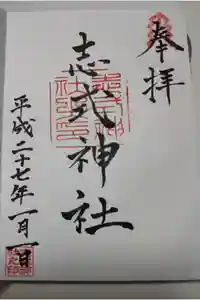 奉拝
志式神社
平成二十七年一月一日